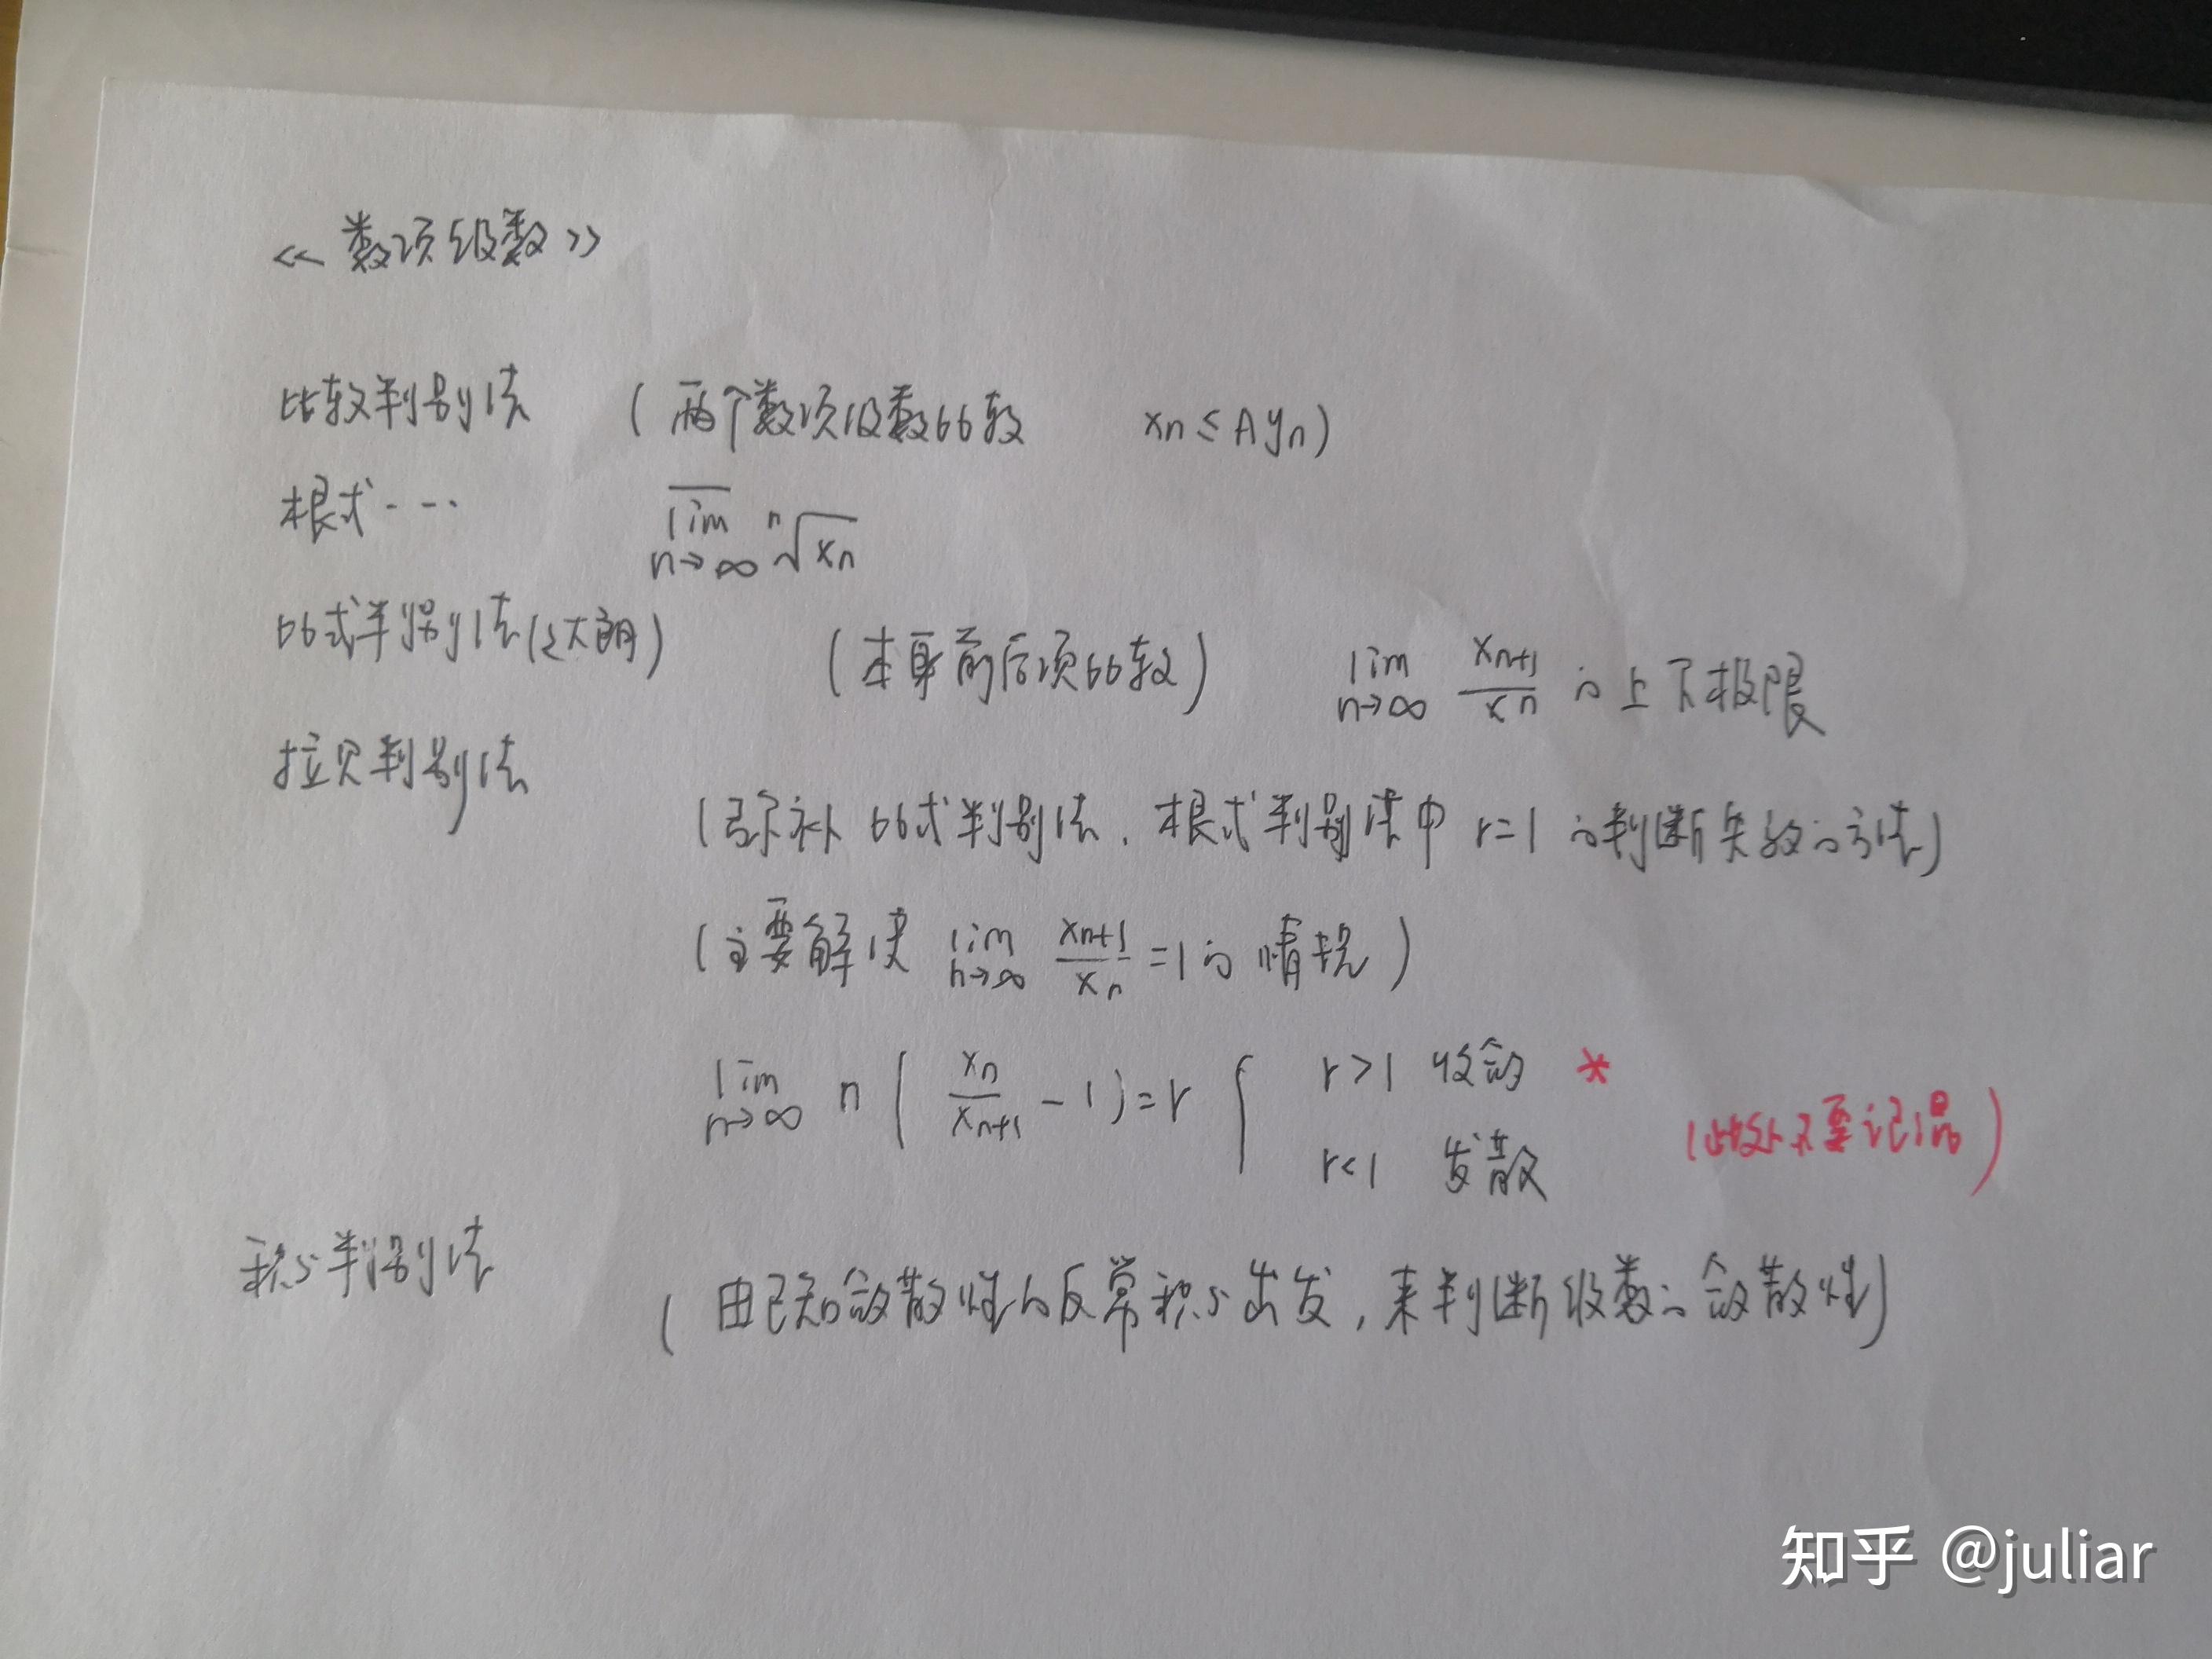 <<数项级数>>
比较判别法 (两个数项级数比较 xn ≤ A yn)
根式····
\overline{lim}_{n→∞} \sqrt[n]{xn}
比式判别法(达朗) (本身前后项比较) lim_{n→∞} \frac{x_{n+1}}{x_n} 的上下极限
拉贝判别法
(弥补 比式判别法、根式判别法中 r=1 的判断失效的方法)
(主要解决 lim_{n→∞} \frac{x_{n+1}}{x_n} =1 的情况)
lim_{n→∞} n ( \frac{x_n}{x_{n+1}} - 1) = r { r>1 收敛 *
r<1 发散
(此处不要记混)
积分判别法
(由已知敛散性的反常积分出发,来判断级数的敛散性)
知乎 @juliar